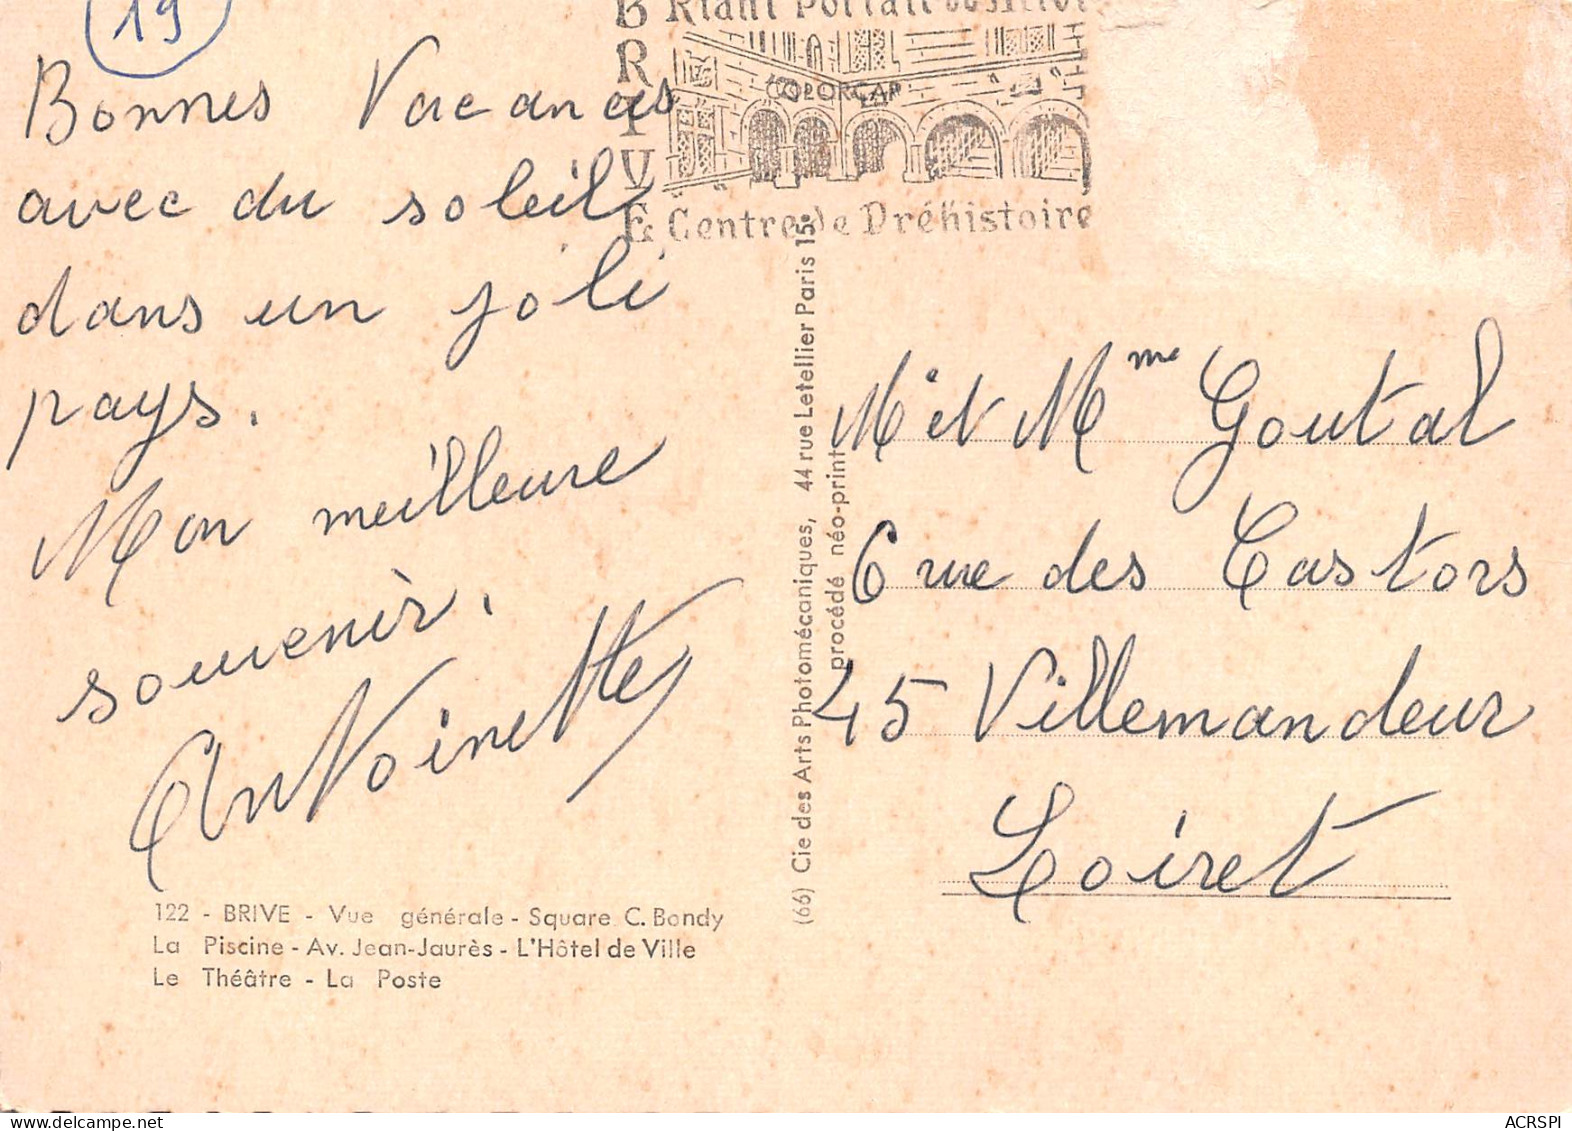 19
BRIVE
Riant Portail du Midi
COLORCAP
Centre de Préhistoire
Bonnes Vacances
avec du soleil
dans un joli
pays.
Mon meilleure
souvenir.
Antoinette
122 - BRIVE - Vue générale - Square C. Bondy
La Piscine - Av. Jean-Jaurès - L'Hôtel de Ville
Le Théâtre - La Poste
(66) Cie des Arts Photomécaniques, 44 rue Letellier Paris 15e
procédé néo-print
M et Mme Goutal
6 rue des Castors
45 Villemandeur
Loiret
ACRSPI